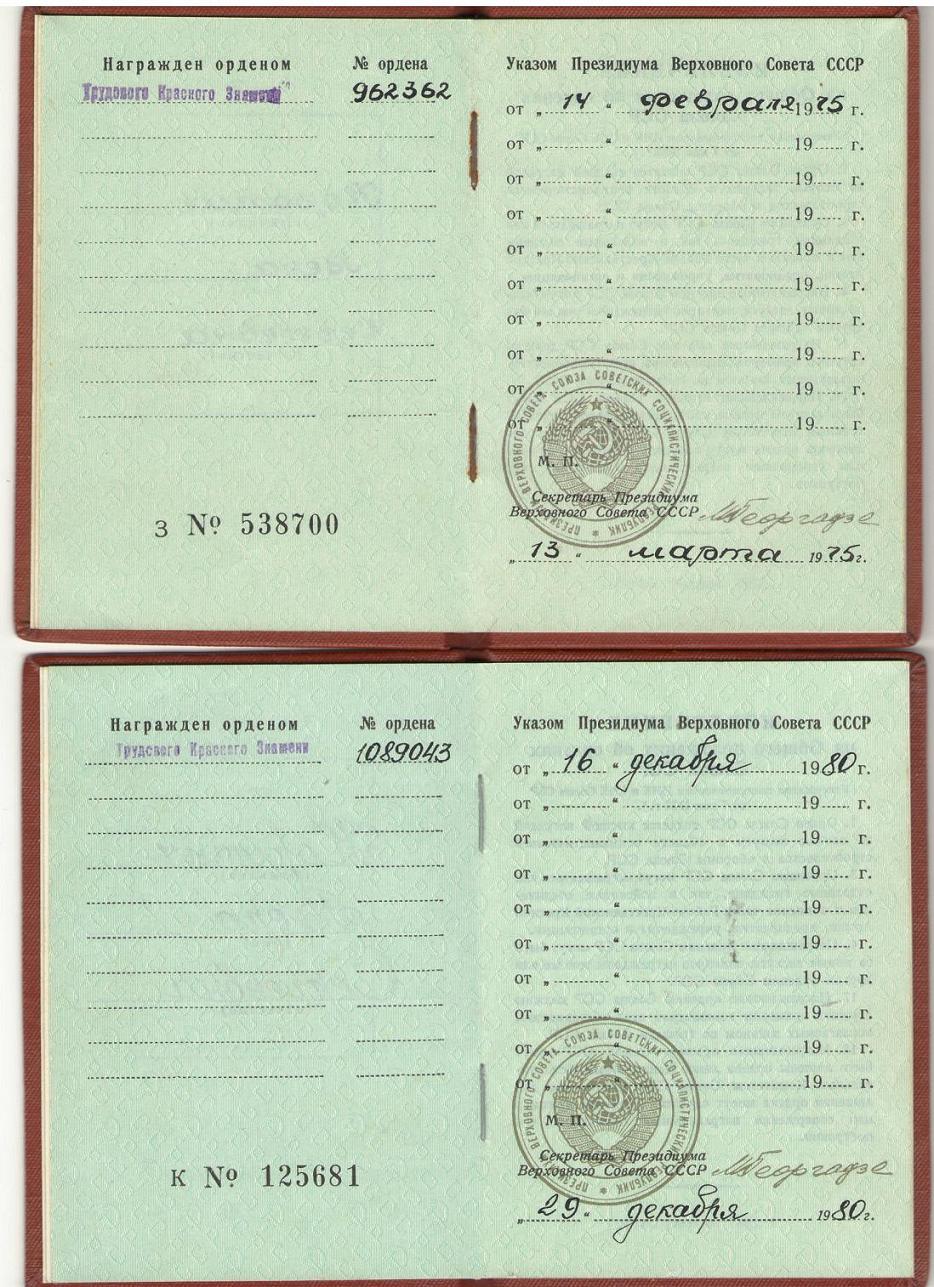 Награжден орденом № ордена
Трудового Красного Знамени 962362
Указом Президиума Верховного Совета СССР
от „ 14 “ февраля 1975 г.
от „ “ 19 г.
от „ “ 19 г.
от „ “ 19 г.
от „ “ 19 г.
от „ “ 19 г.
от „ “ 19 г.
от „ “ 19 г.
от „ “ 19 г.
от „ “ 19 г.
ПРЕЗИДИУМ ВЕРХОВНОГО СОВЕТА СОЮЗА СОВЕТСКИХ СОЦИАЛИСТИЧЕСКИХ РЕСПУБЛИК
М. П.
Секретарь Президиума
Верховного Совета СССР МГеоргадзе
„ 13 “ марта 1975 г.
З № 538700
Награжден орденом № ордена
Трудового Красного Знамени 1089043
Указом Президиума Верховного Совета СССР
от „ 16 “ декабря 1980 г.
от „ “ 19 г.
от „ “ 19 г.
от „ “ 19 г.
от „ “ 19 г.
от „ “ 19 г.
от „ “ 19 г.
от „ “ 19 г.
от „ “ 19 г.
от „ “ 19 г.
ПРЕЗИДИУМ ВЕРХОВНОГО СОВЕТА СОЮЗА СОВЕТСКИХ СОЦИАЛИСТИЧЕСКИХ РЕСПУБЛИК
М. П.
Секретарь Президиума
Верховного Совета СССР МГеоргадзе
„ 29 “ декабря 1980 г.
К № 125681